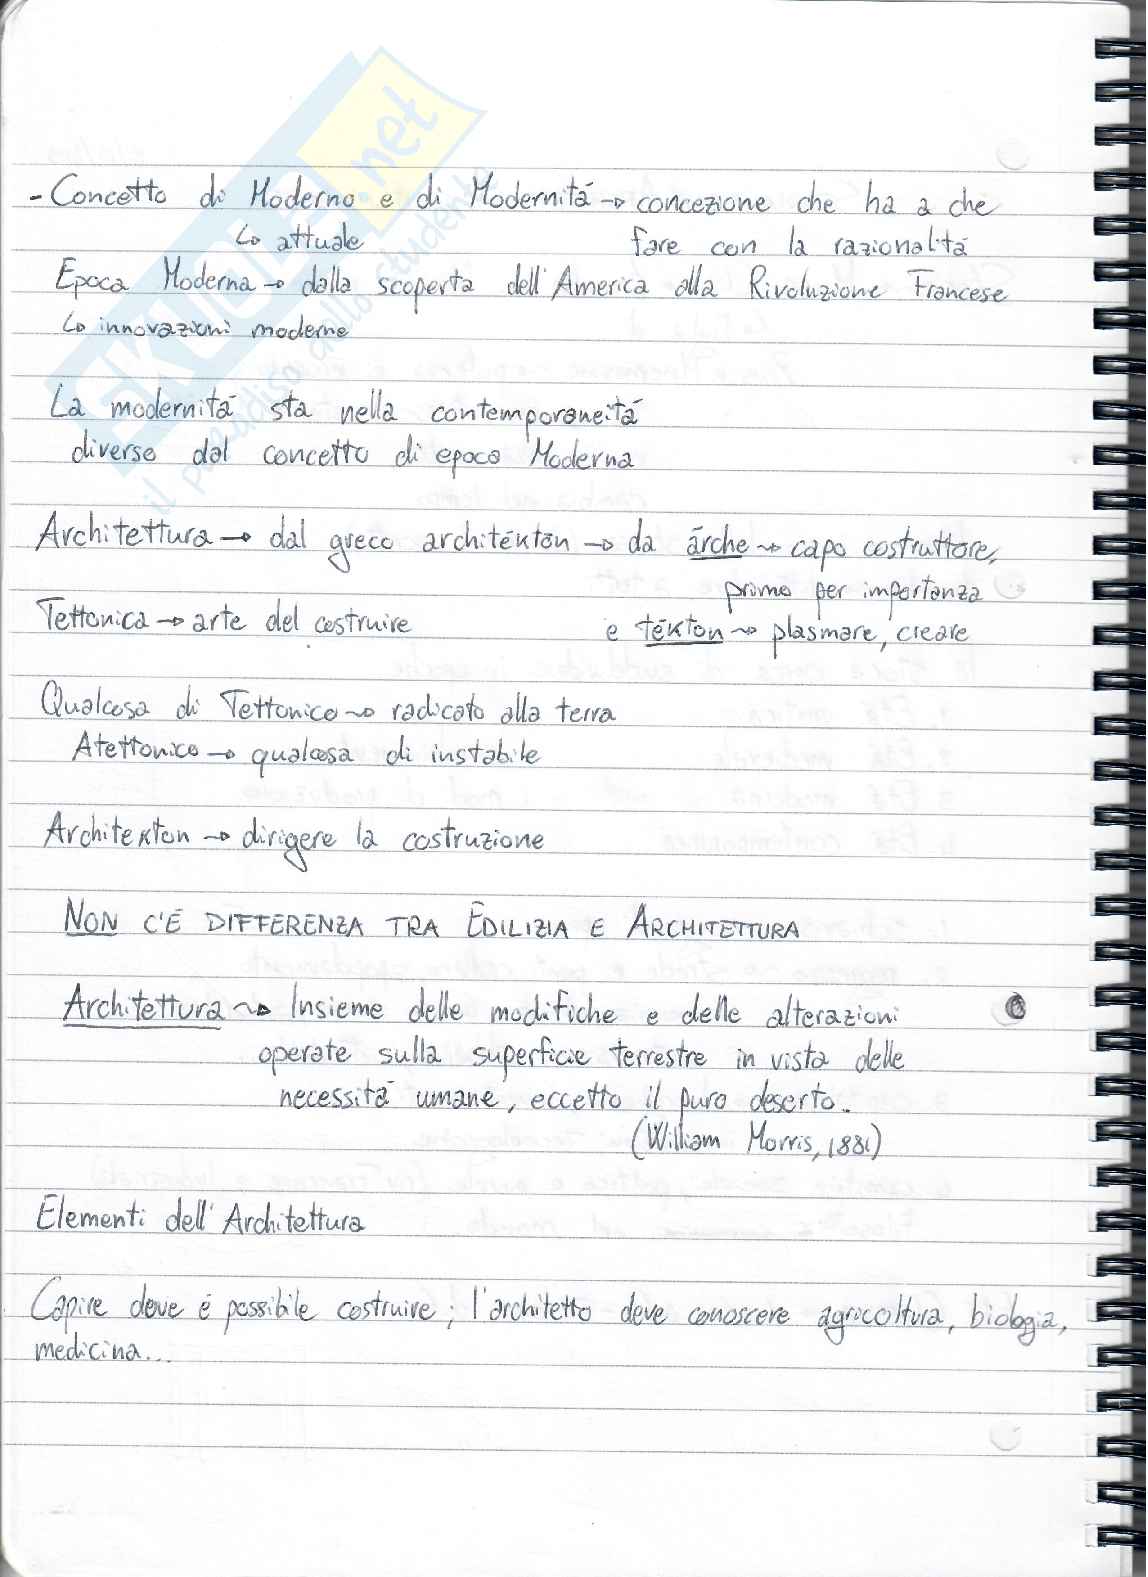 - Concetto di Moderno e di Modernità → concezione che ha a che
↳ attuale fare con la razionalità
Epoca Moderna → dalla scoperta dell'America alla Rivoluzione Francese
↳ innovazioni moderne
La modernità sta nella contemporaneità
diverso dal concetto di epoca Moderna
Architettura → dal greco architékton → da àrche → capo costruttore,
primo per importanza
Tettonica → arte del costruire e tékton → plasmare, creare
Qualcosa di Tettonico → radicato alla terra
Atettonico → qualcosa di instabile
Architekton → dirigere la costruzione
NON C'È DIFFERENZA TRA EDILIZIA E ARCHITETTURA
Architettura → Insieme delle modifiche e delle alterazioni
operate sulla superficie terrestre in vista delle
necessità umane, eccetto il puro deserto.
(William Morris, 1881)
Elementi dell'Architettura
Capire dove è possibile costruire; l'architetto deve conoscere agricoltura, biologia,
medicina...
SKUOLA.net
il paradiso dello studente